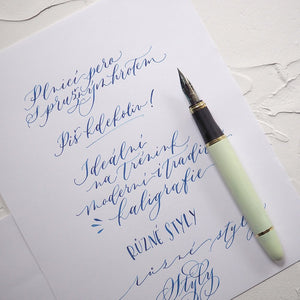 Plnicí pero
s pružným hrotem
Piš kdekoliv!
Ideální
na trénink
moderní i tradiční
kaligrafie
RŮZNÉ STYLY
různé styly
Styly